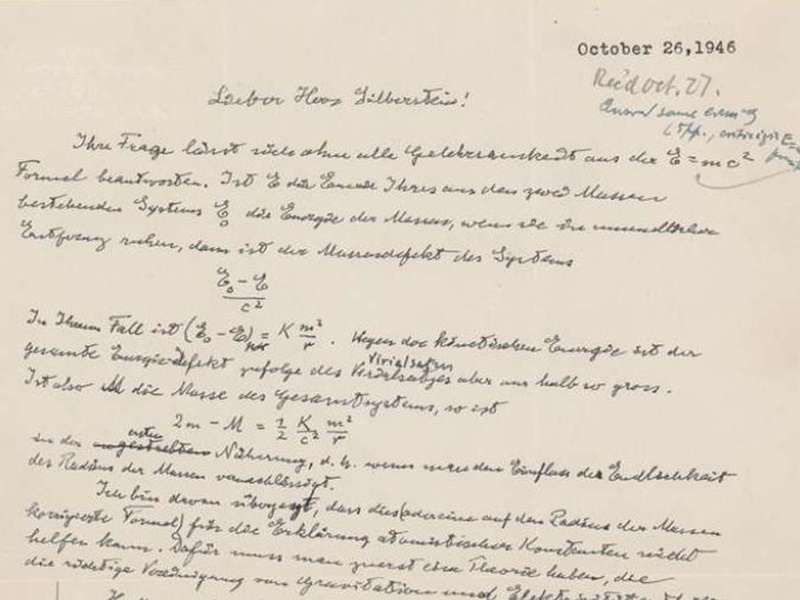 October 26, 1946
Rec'd Oct. 27.
Answ'd same
Lieber Herr Silberstein!
Ihre Frage lässt sich ohne alle Gelehrsamkeit aus der E = mc²
Formel beantworten. Ist E die Energie Ihres aus den zwei Massen
bestehenden Systems E₀ die Energie der Massen, wenn sie in unendlicher
Entfernung ruhen, dann ist der Massendefekt des Systems
E₀ − E
c²
In Ihrem Fall ist (E₀ − E) = K m²/r. Wegen der kinetischen Energie ist der
gesamte Energiedefekt zufolge des Virialsatzes aber nur halb so gross.
Ist also M die Masse des Gesamtsystems, so ist
2m − M = 1/2 K/c² m²/r
in der ersten Näherung, d. h. wenn man den Einfluss der Endlichkeit
des Radius der Massen vernachlässigt.
Ich bin davon überzeugt, dass dies (oder eine auf den Radius der Massen
korrigierte Formel) für die Erklärung atomistischer Konstanten nicht
helfen kann. Dafür muss man zuerst eine Theorie haben, die
die richtige Vereinigung von Gravitation und